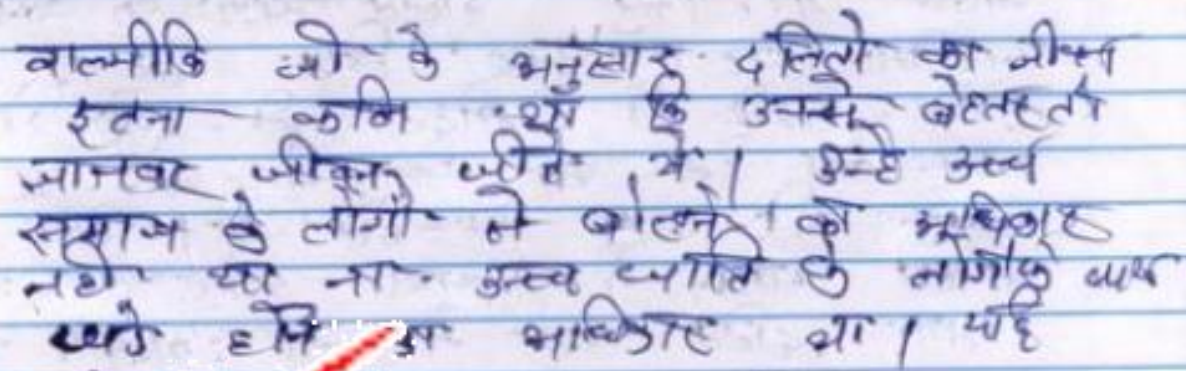 वाल्मीकि जी के अनुसार दलितो का जीवन
इतना कठिन था कि उनसे बेहतर तो
जानवर जीवन जीते थे। उन्हे उच्च
समाज के लोगो से बोलने का अधिकार
नही था ना उच्च जाति के लोगो के साथ
खडे होने का अधिकार था। यदि